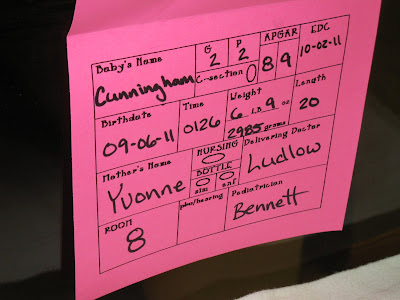 Baby's Name G 2 P 2 APGAR 8 9 EDC 10-02-11
Cunningham C-section
Birthdate 09-06-11 Time 0126 Weight 6 LB 9 oz 2985 grams Length 20
Mother's Name Yvonne NURSING BOTTLE sim enf Delivering Doctor Ludlow
ROOM 8 pku/hearing Pediatrician Bennett